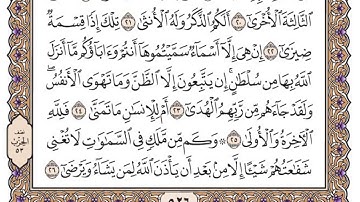 ٱلثَّالِثَةَ ٱلْأُخْرَىٰٓ ٢٠ أَلَكُمُ ٱلذَّكَرُ وَلَهُ ٱلْأُنثَىٰ ٢١ تِلْكَ إِذًا قِسْمَةٌ
ضِيزَىٰٓ ٢٢ إِنْ هِىَ إِلَّآ أَسْمَآءٌ سَمَّيْتُمُوهَآ أَنتُمْ وَءَابَآؤُكُم مَّآ أَنزَلَ
ٱللَّهُ بِهَا مِن سُلْطَٰنٍ ۚ إِن يَتَّبِعُونَ إِلَّا ٱلظَّنَّ وَمَا تَهْوَى ٱلْأَنفُسُ ۖ
وَلَقَدْ جَآءَهُم مِّن رَّبِّهِمُ ٱلْهُدَىٰٓ ٢٣ أَمْ لِلْإِنسَٰنِ مَا تَمَنَّىٰ ٢٤ فَلِلَّهِ
ٱلْأٓخِرَةُ وَٱلْأُولَىٰ ٢٥ ۞ وَكَم مِّن مَّلَكٍ فِى ٱلسَّمَٰوَٰتِ لَا تُغْنِى
شَفَٰعَتُهُمْ شَيْـًٔا إِلَّا مِنۢ بَعْدِ أَن يَأْذَنَ ٱللَّهُ لِمَن يَشَآءُ وَيَرْضَىٰٓ ٢٦
نصف
الحزب
٥٣
٥٢٦